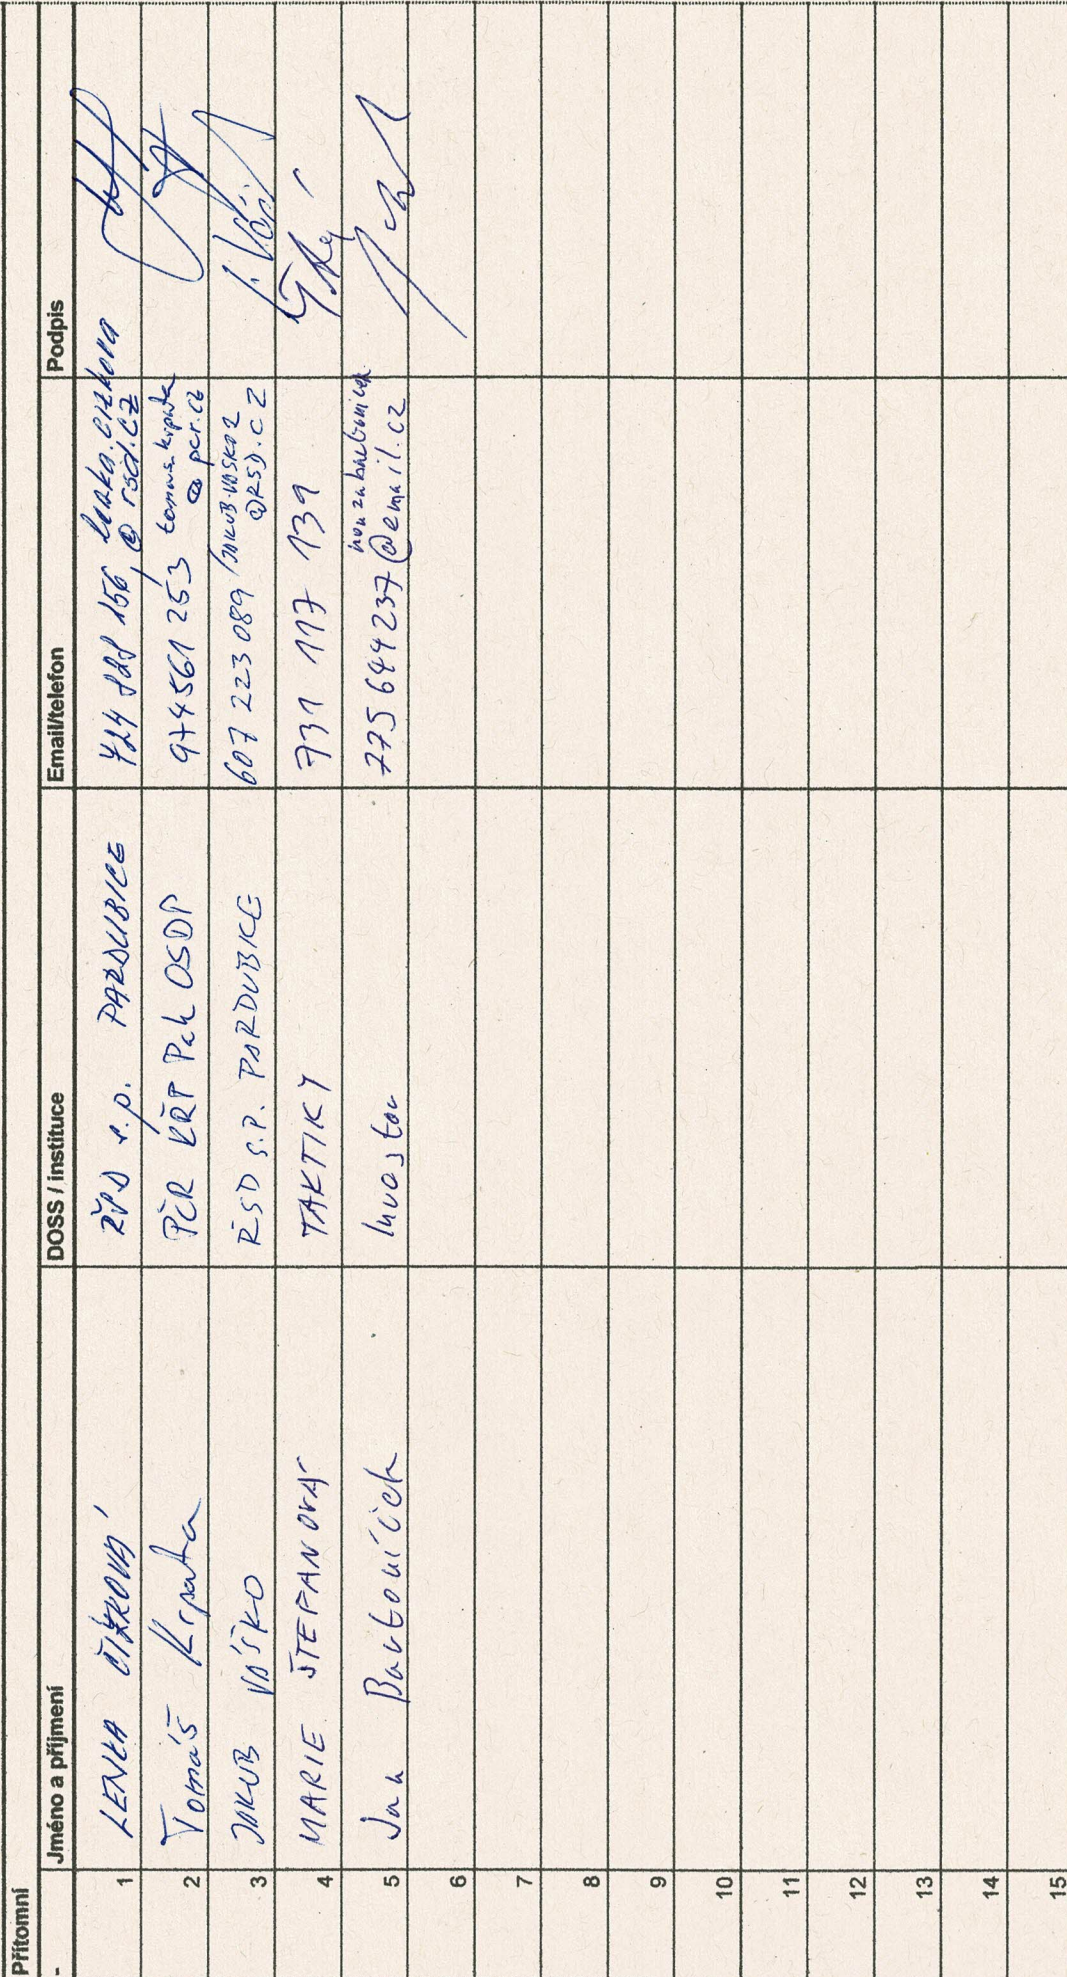 Přítomní
- Jméno a příjmení DOSS / instituce Email/telefon Podpis
1 LENKA ČÍŽKOVÁ ŘSD s.p. PARDUBICE 724 228 156, lenka.cizkova
@rsd.cz
2 Tomáš Krpata PČR KŘP Pak OSDP 974561 253 tomas.krpata
@pcr.cz
3 JAKUB VAŠKO ŘSD S.P. PARDUBICE 607 223 089 / JAKUB.VASKO2
@RSD.CZ
4 MARIE ŠTEFANOVÁ TAKTIKY 731 117 139
5 Jan Bartoníček Investor 775 644 237
@email.cz
6
7
8
9
10
11
12
13
14
15